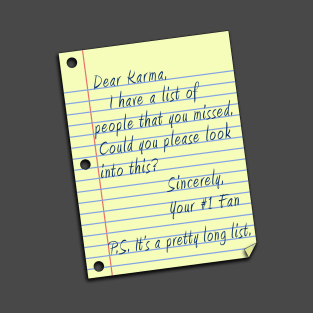 Dear Karma,
I have a list of
people that you missed.
Could you please look
into this?
Sincerely,
Your #1 Fan
P.S. It's a pretty long list.